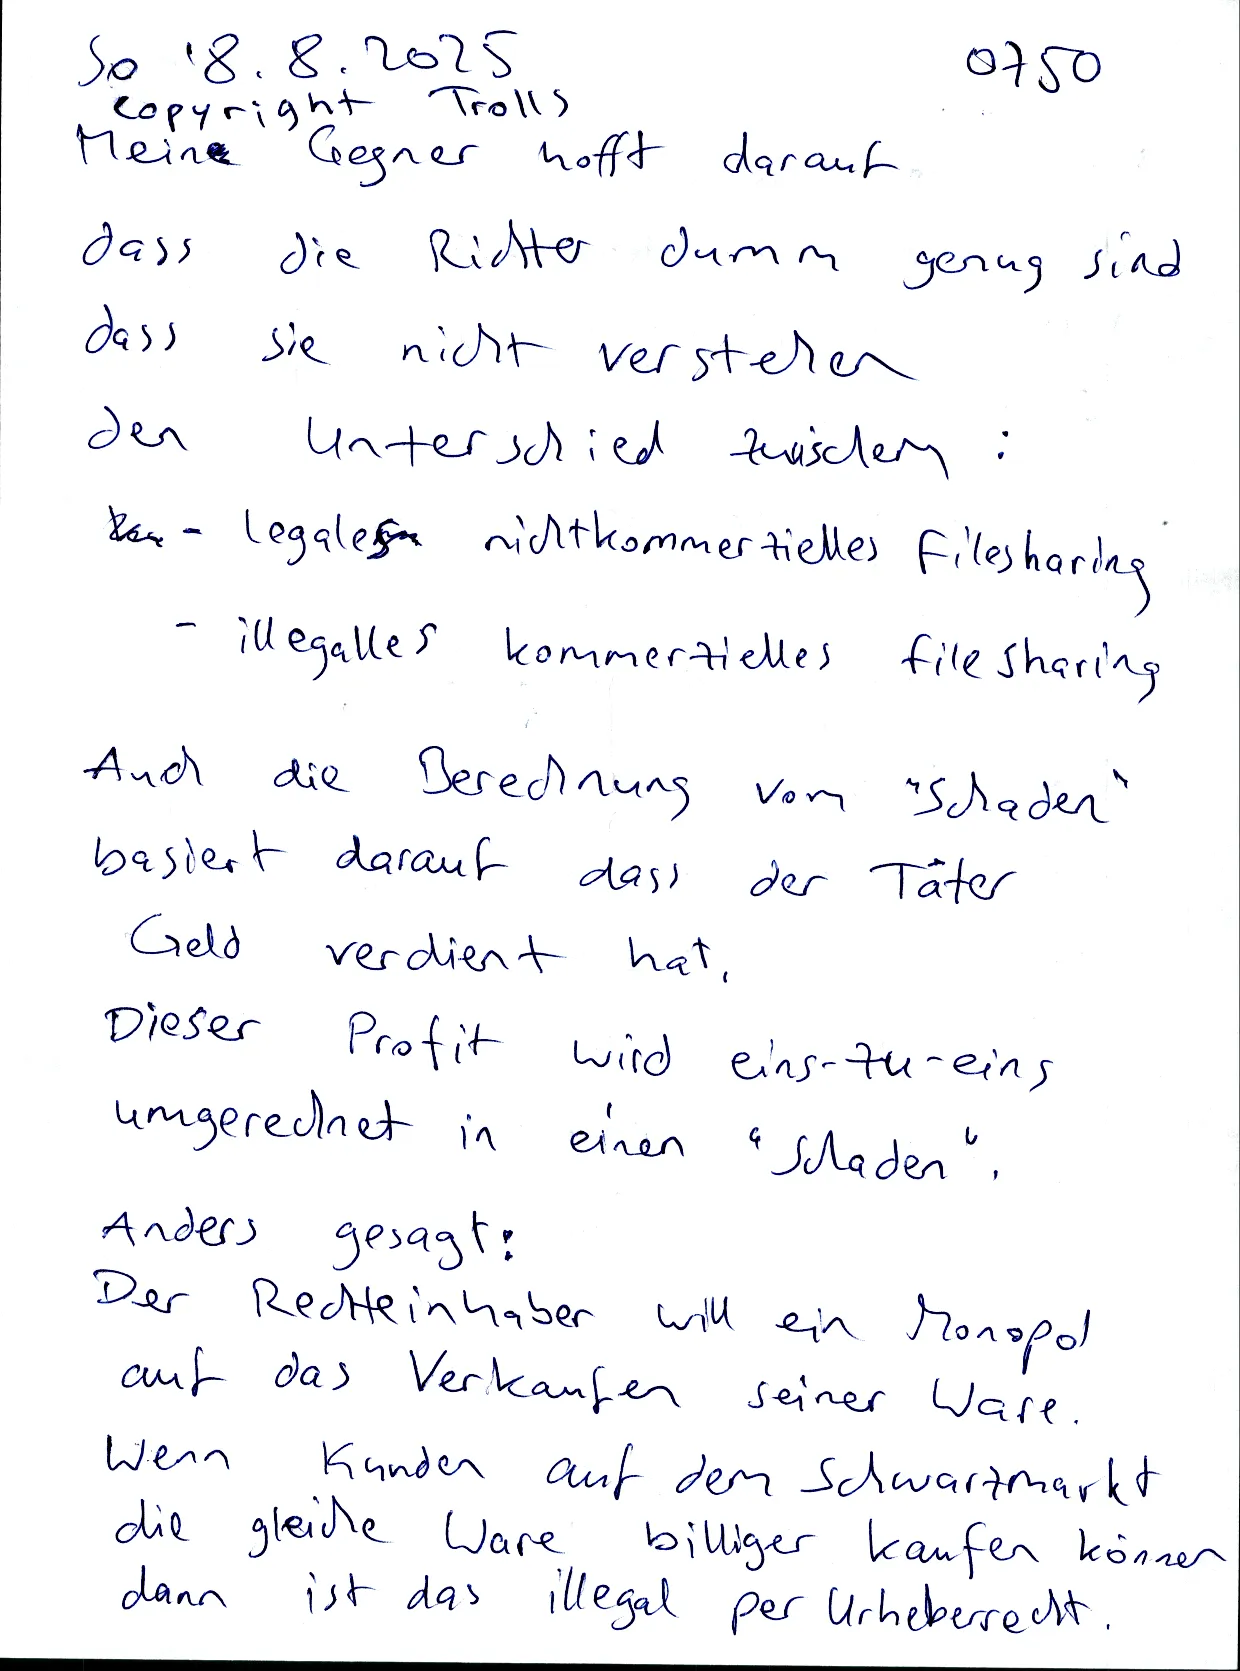 So 18.8.2025 0750
copyright Trolls
Mein Gegner hofft darauf
dass die Richter dumm genug sind
dass sie nicht verstehen
den Unterschied zwischem :
- legales nichtkommerzielles filesharing
- illegalles kommerzielles filesharing
Auch die Berechnung vom "Schaden"
basiert darauf dass der Täter
Geld verdient hat,
Dieser Profit wird eins-zu-eins
umgerechnet in einen "Schaden".
Anders gesagt:
Der Rechteinhaber will ein Monopol
auf das Verkaufen seiner Ware.
Wenn Kunden auf dem Schwarzmarkt
die gleiche Ware billiger kaufen können
dann ist das illegal per Urheberrecht.